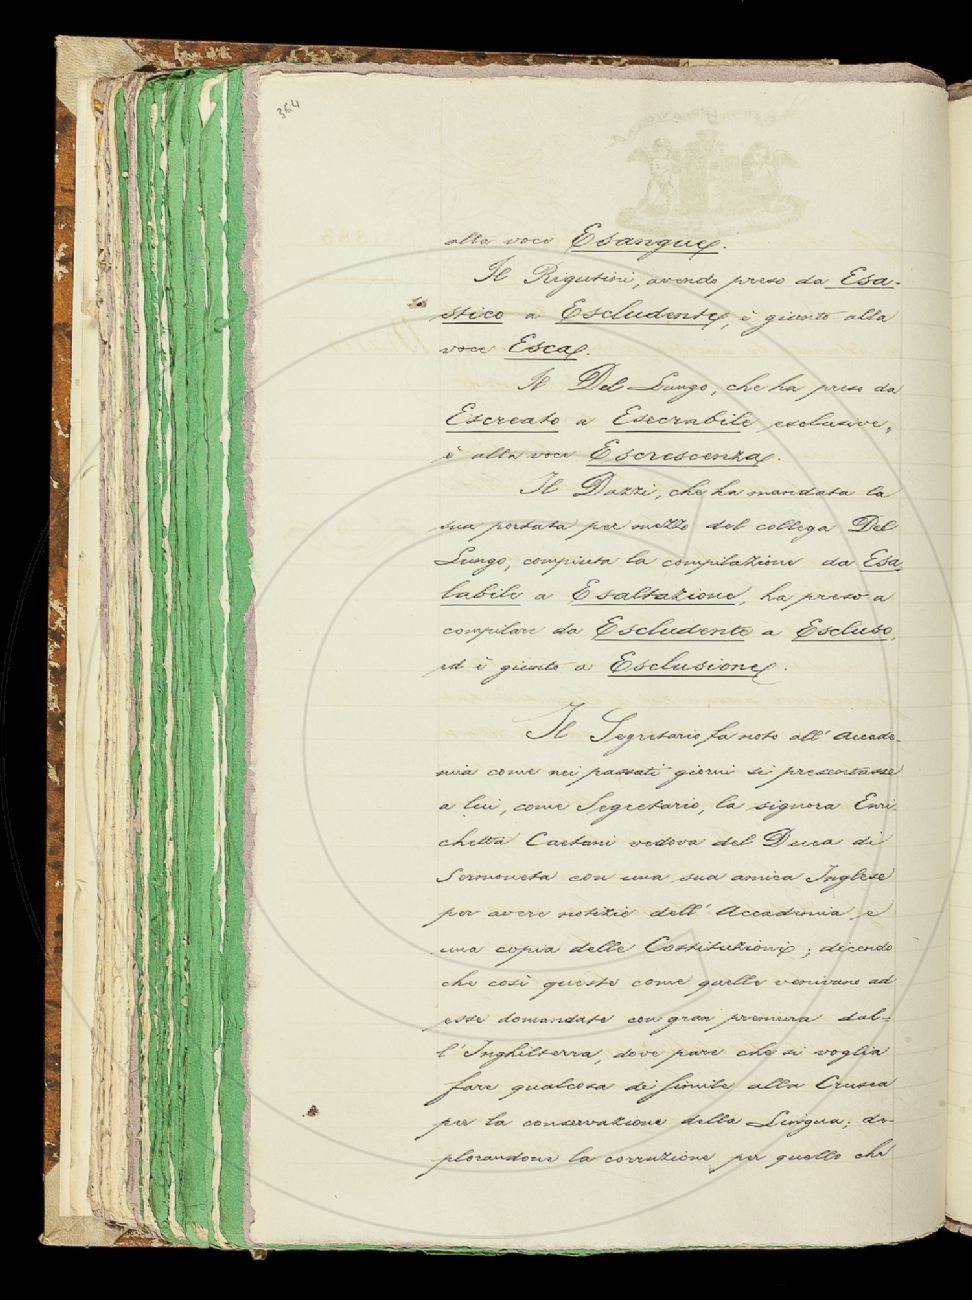 364
alla voce Esangue.
Il Rigutini, avendo preso da Esa-
stico a Escludente, è giunto alla
voce Esca.
Il Del Lungo, che ha preso da
Escreato a Esecrabile esclusive,
è alla voce Escrescenza.
Il Dazzi, che ha mandata la
sua portata per mezzo del collega Del
Lungo, compiuta la compilazione da Esa
labile a Esaltazione, ha preso a
compilare da Escludente a Escluso,
ed è giunto a Esclusione.
Il Segretario fa noto all'Accade-
mia come nei passati giorni si presentasse
a lui, come Segretario, la signora Enri
chetta Caetani vedova del Duca di
Sermoneta con una sua amica Inglese
per avere notizie dell'Accademia e
una copia delle Costituzioni; dicendo
che così queste come quelle venivano ad
esse domandate con gran premura dal-
l'Inghilterra, dove pare che si voglia
fare qualcosa di simile alla Crusca
per la conservazione della Lingua; de-
plorandone la corruzione per quello che